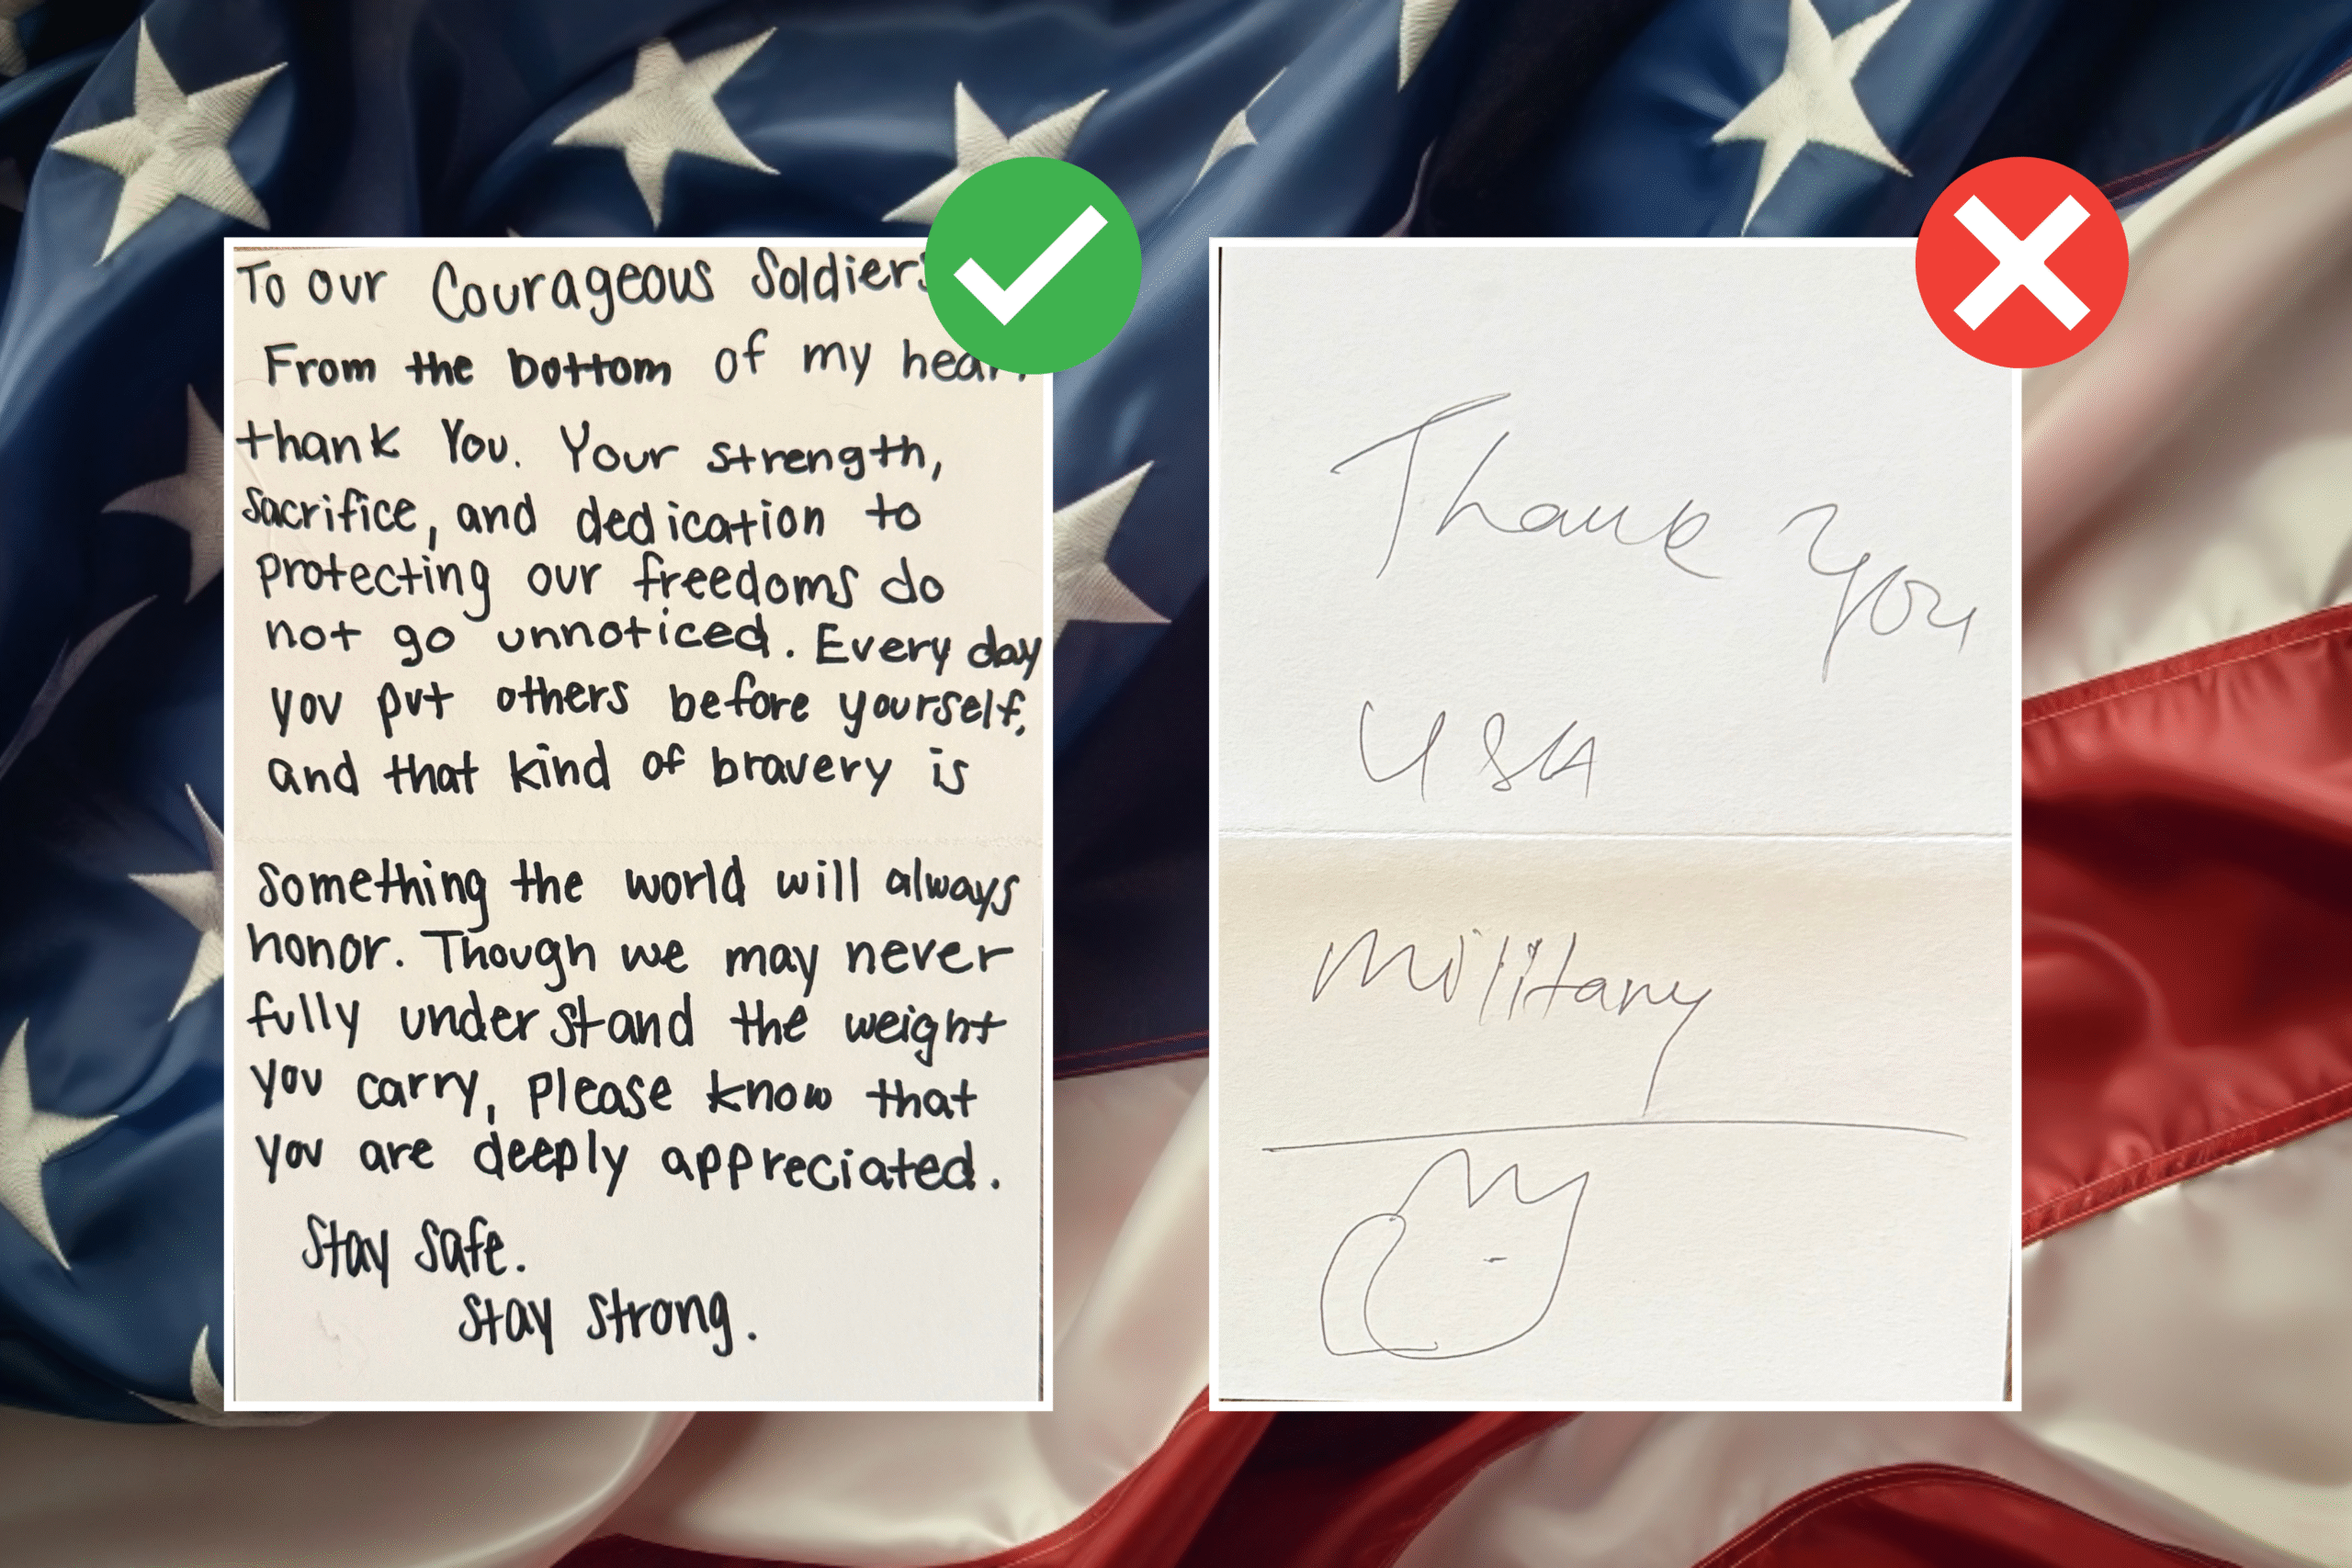 To our Courageous Soldiers
From the bottom of my heart
thank You. Your strength,
Sacrifice, and dedication to
protecting our freedoms do
not go unnoticed. Every day
you put others before yourself,
and that kind of bravery is
Something the world will always
honor. Though we may never
fully understand the weight
you carry, please know that
you are deeply appreciated.
Stay Safe.
Stay Strong.
Thank you
USA
Military